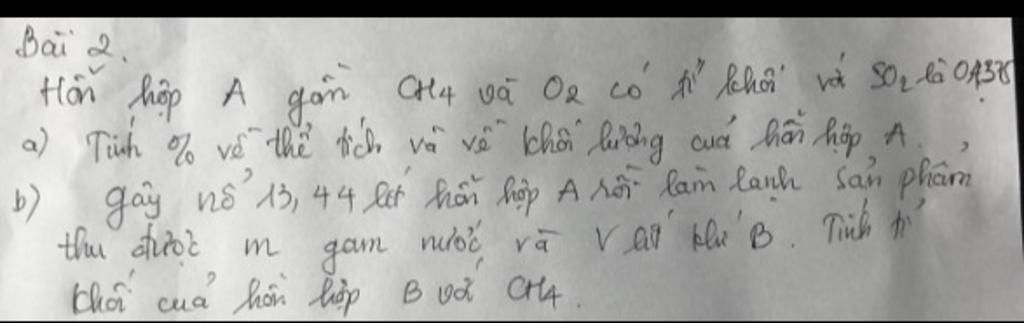 Bài 2.
Hỗn hợp A gồm CH4 và O2 có tỉ khối với SO2 là 0,4375
a) Tính % về thể tích và về khối lượng của hỗn hợp A.
b) gây nổ 13,44 lít hỗn hợp A rồi làm lạnh sản phẩm
thu được m gam nước và V lít khí B. Tính tỉ
khối của hỗn hợp B với CH4.